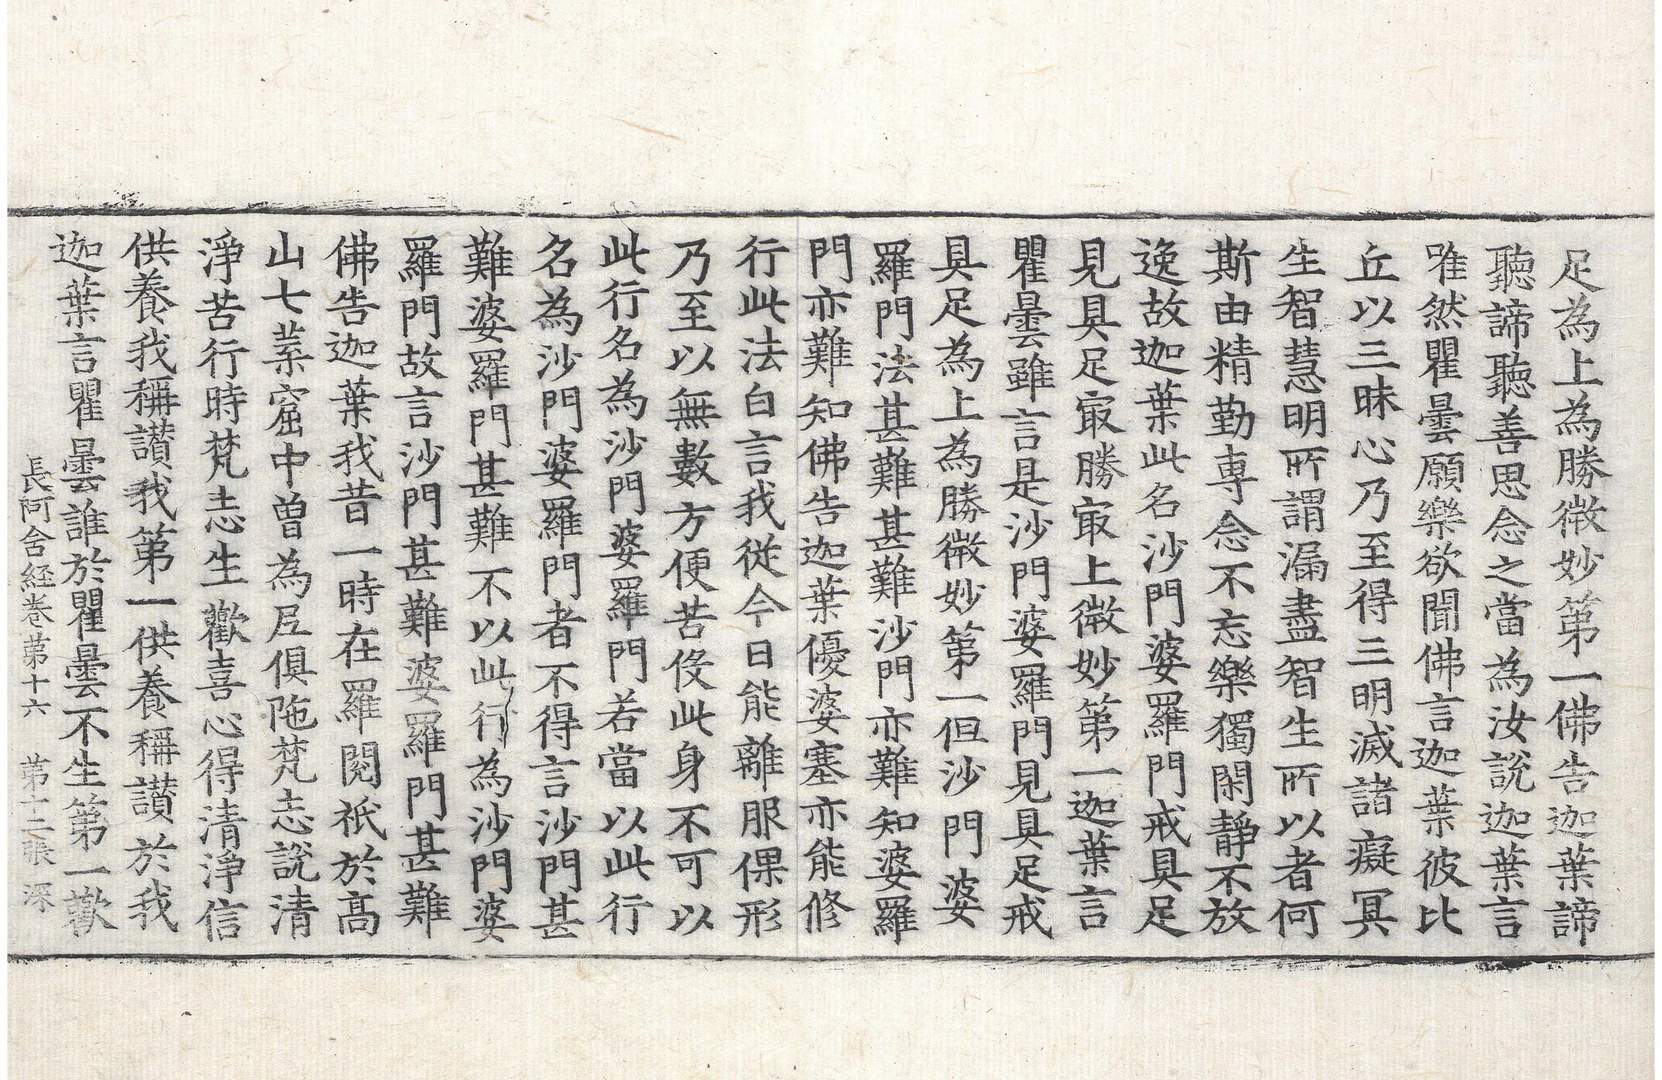 足為上為勝微妙第一佛告迦葉諦
聽諦聽善思念之當為汝說迦葉言
唯然瞿曇願樂欲聞佛言迦葉彼比
丘以三昧心乃至得三明滅諸癡冥
生智慧明所謂漏盡智生所以者何
斯由精勤專念不忘樂獨閑靜不放
逸故迦葉此名沙門婆羅門戒具足
見具足㝡勝㝡上微妙第一迦葉言
瞿曇雖言是沙門婆羅門見具足戒
具足為上為勝微妙第一但沙門婆
羅門法甚難甚難沙門亦難知婆羅
門亦難知佛告迦葉優婆塞亦能修
行此法白言我從今日能離服倮形
乃至以無數方便苦役此身不可以
此行名為沙門婆羅門若當以此行
名為沙門婆羅門者不得言沙門甚
難婆羅門甚難不以此行為沙門婆
羅門故言沙門甚難婆羅門甚難
佛告迦葉我昔一時在羅閱祇於高
山七葉窟中曾為尼俱陁梵志說清
淨苦行時梵志生歡喜心得清淨信
供養我稱讃我第一供養稱讃於我
迦葉言瞿曇誰於瞿曇不生第一歡
長阿含経卷第十六 第十二張 深